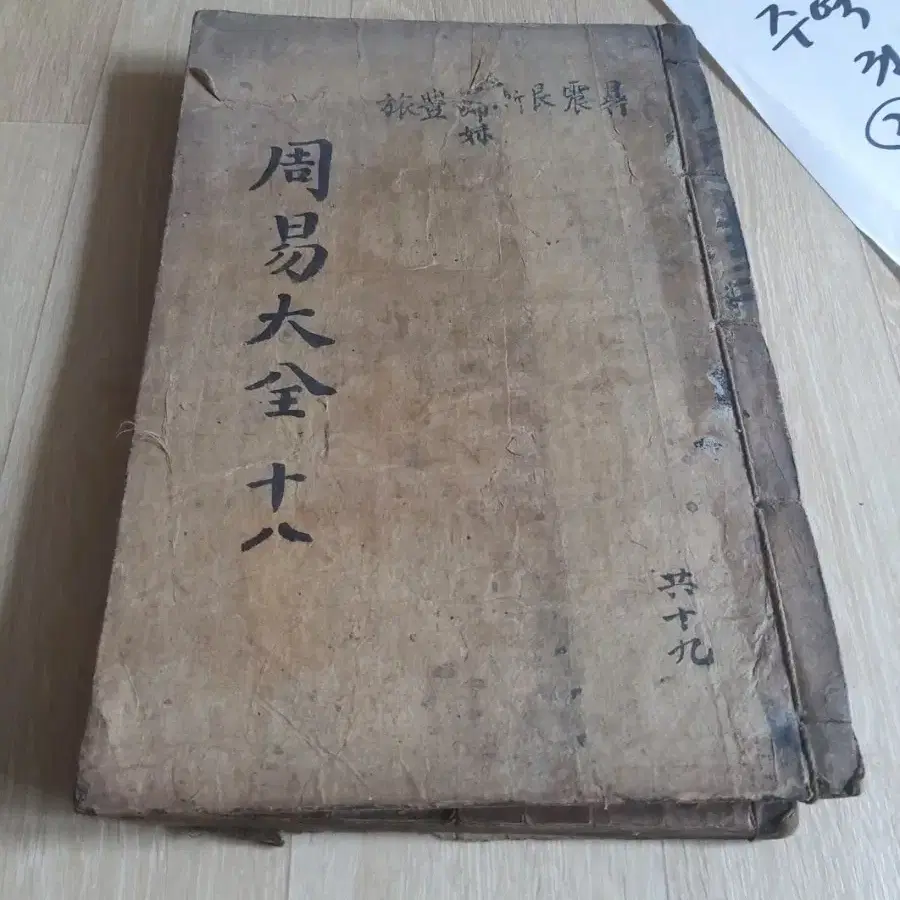 鼎震艮漸歸妹豊旅
周易大全 十八
共十九
주역